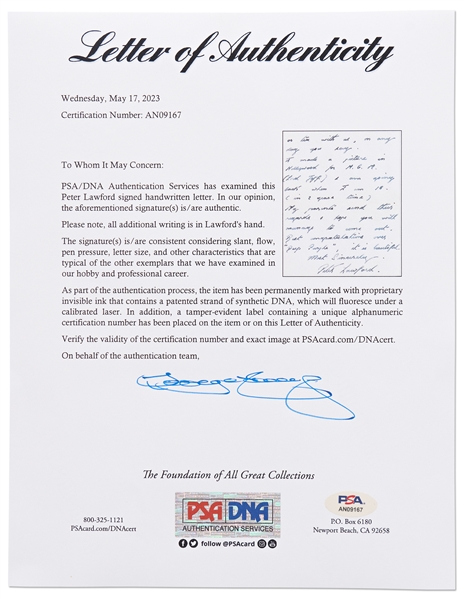 Letter of Authenticity
Wednesday, May 17, 2023
Certification Number: AN09167
To Whom It May Concern:
PSA/DNA Authentication Services has examined this
Peter Lawford signed handwritten letter. In our opinion,
the aforementioned signature(s) is/are authentic.
Please note, all additional writing is in Lawford's hand.
The signature(s) is/are consistent considering slant, flow,
pen pressure, letter size, and other characteristics that are
typical of the other exemplars that we have examined in
our hobby and professional career.
made a picture in
Hollywood for M.G.M.
am going
back when I am 18.
(in 2 years time)
My parents send their
regards & hope you will
manage to come out.
it is beautiful.
Most Sincerely
Peter Lawford.
As part of the authentication process, the item has been permanently marked with proprietary
invisible ink that contains a patented strand of synthetic DNA, which will fluoresce under a
calibrated laser. In addition, a tamper-evident label containing a unique alphanumeric
certification number has been placed on the item or on this Letter of Authenticity.
Verify the validity of the certification number and exact image at PSAcard.com/DNAcert.
On behalf of the authentication team,
The Foundation of All Great Collections
800-325-1121
PSAcard.com/DNAcert
PSA DNA
AUTHENTICATION SERVICES
follow @PSAcard
PSA
AN09167
P.O. Box 6180
Newport Beach, CA 92658